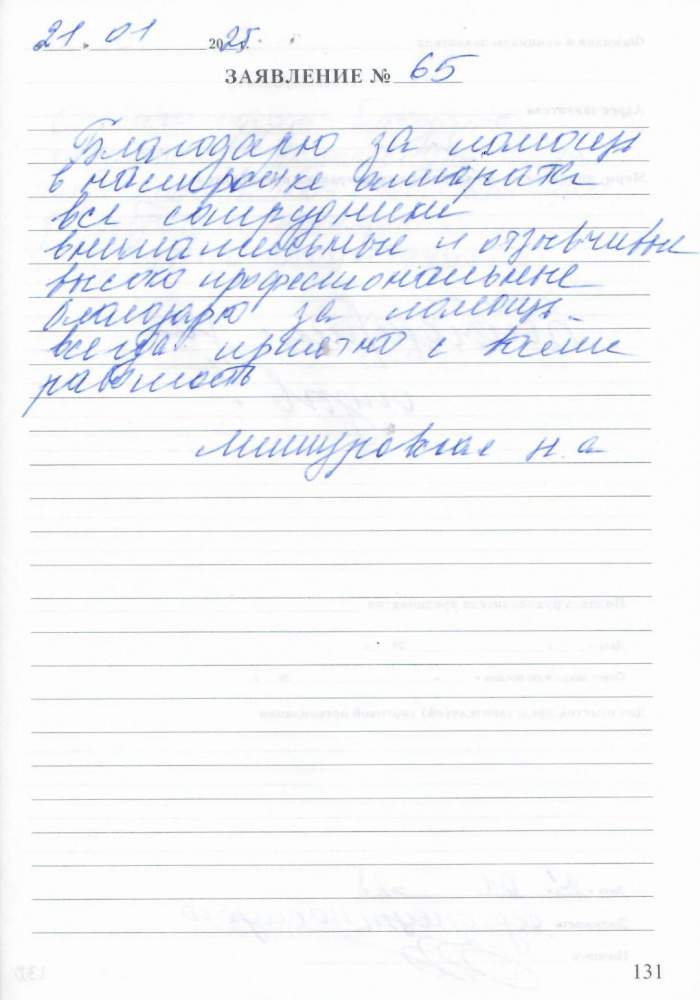 21 » 01 2025 г.
ЗАЯВЛЕНИЕ № 65
Благодарю за помощь
в настройке аппарата
все сотрудники
внимательные и отзывчивые
высоко професиональные
благодарю за помощь
всегда приятно с вами
работать
Мишуровская н.а
131